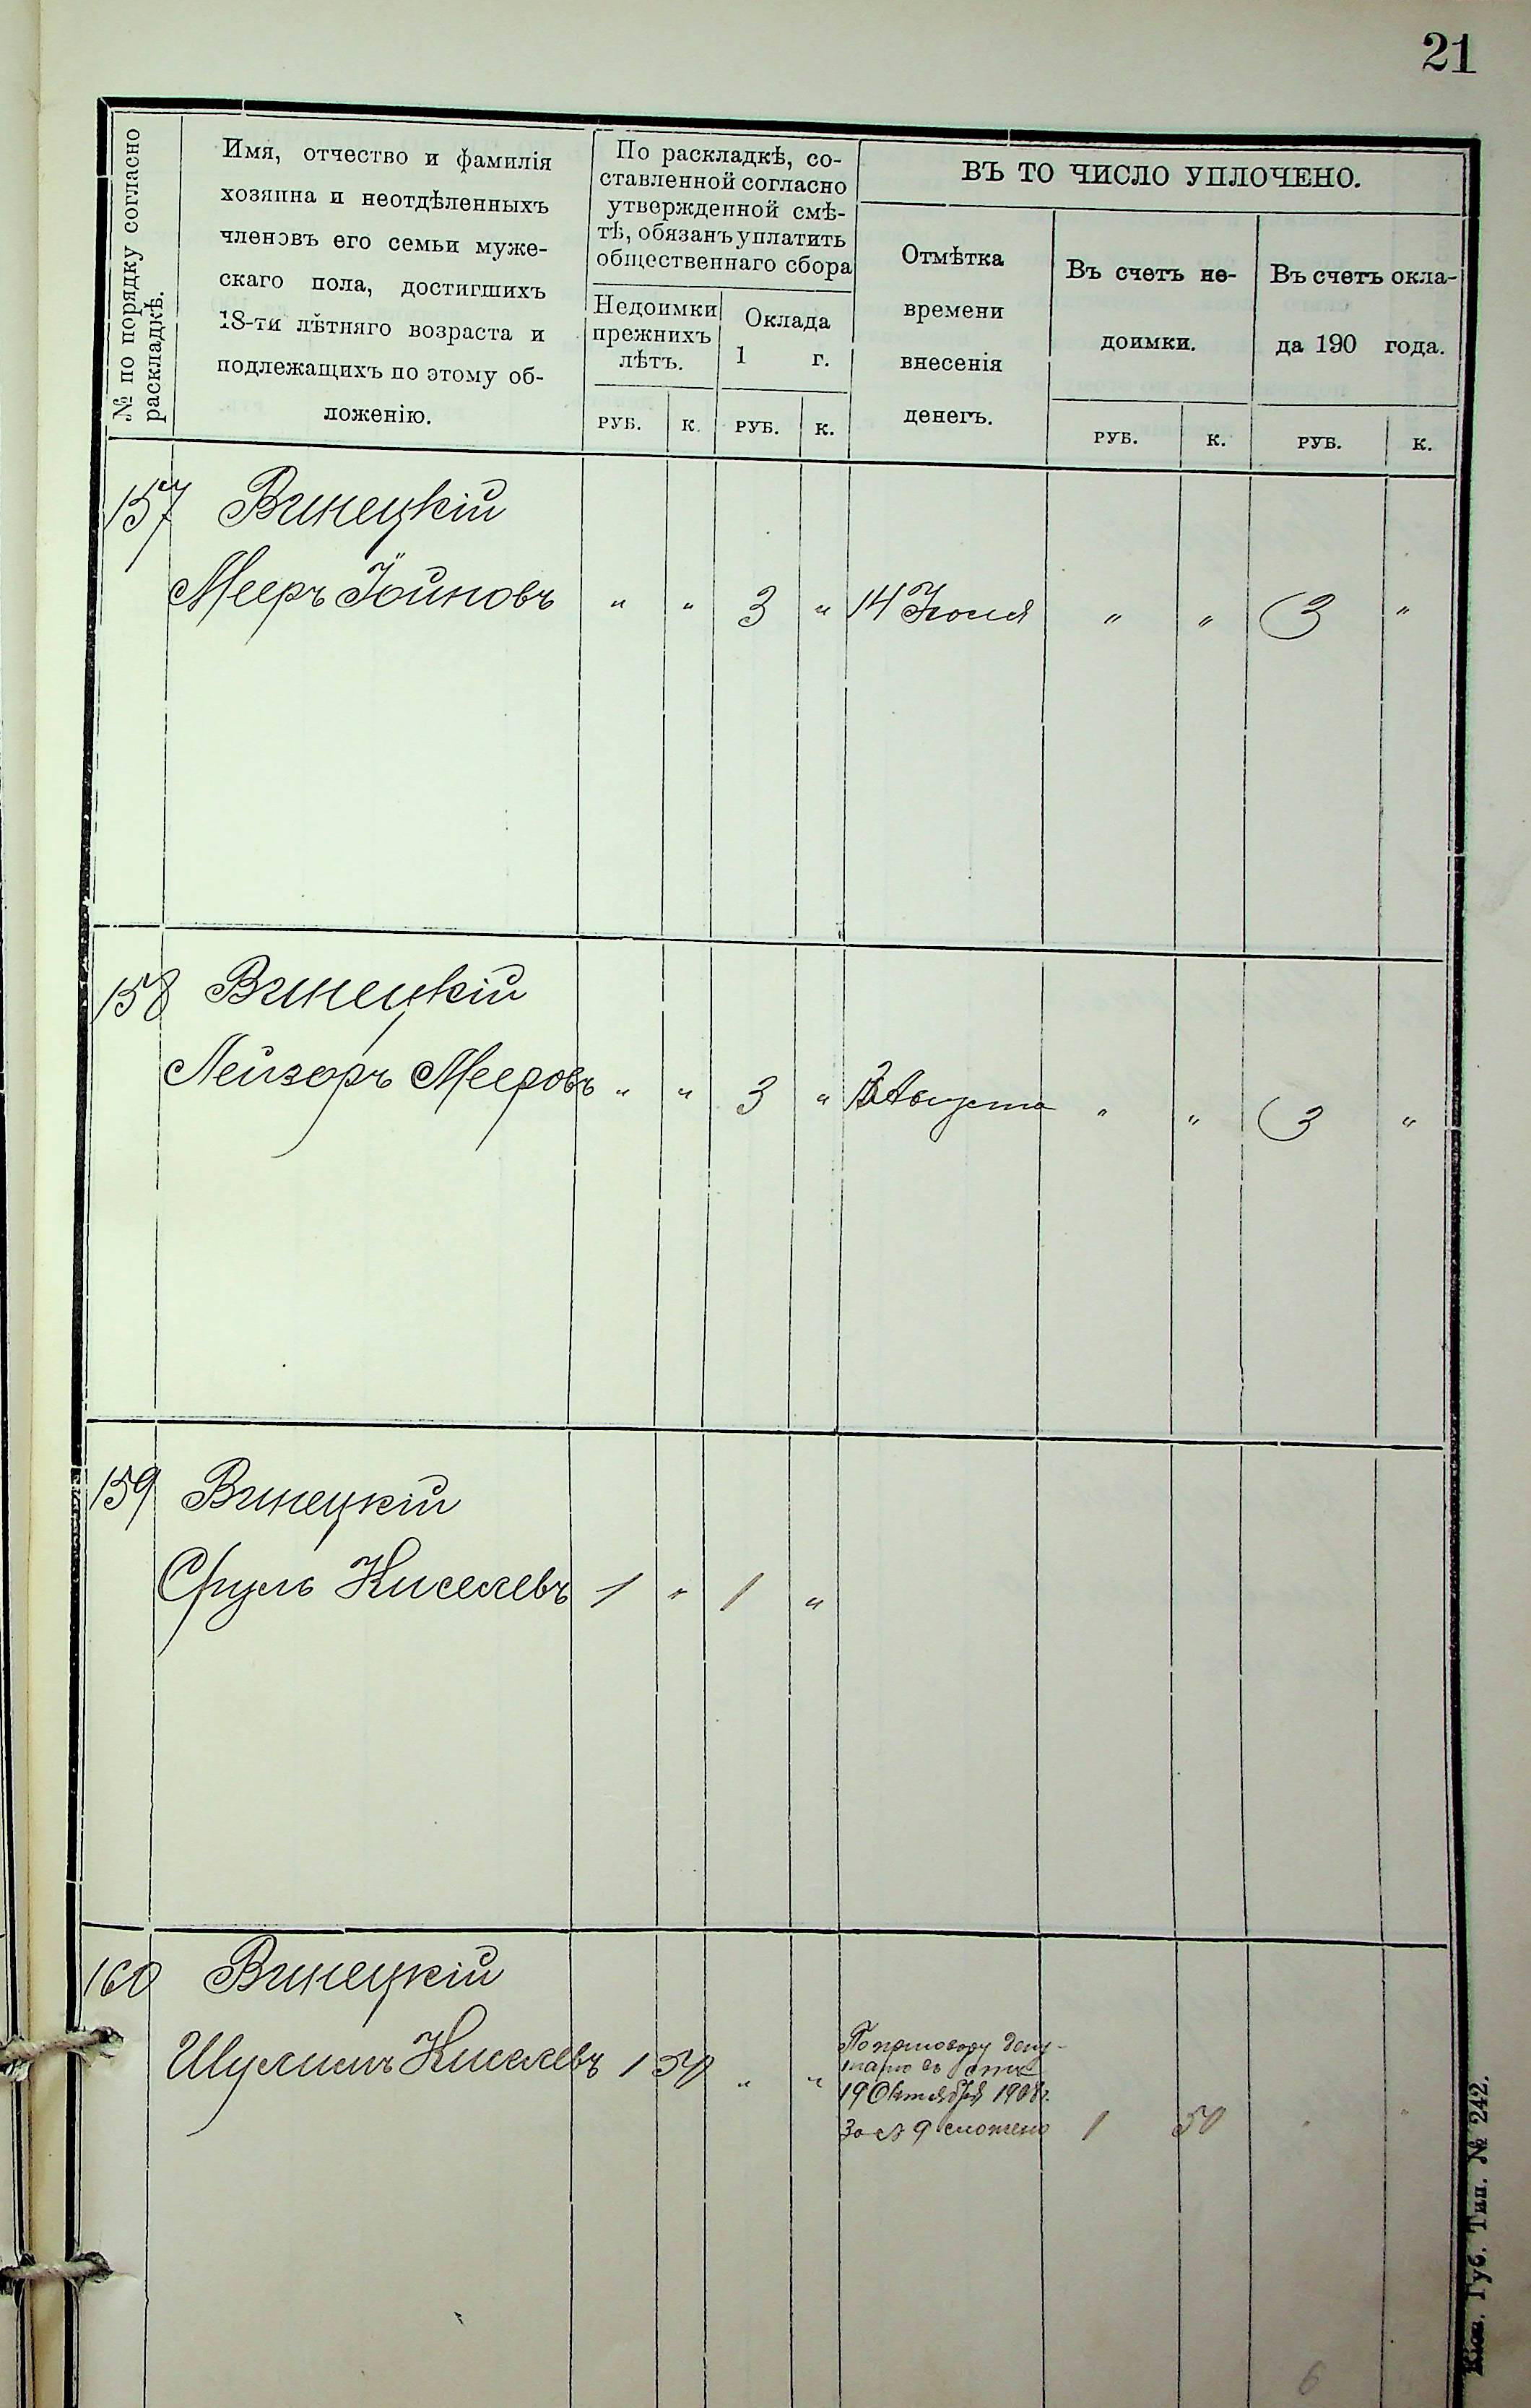 21
№ по порядку согласно
раскладкѣ.
Имя, отчество и фамилія
хозяина и неотдѣленныхъ
членовъ его семьи муже-
скаго пола, достигшихъ
18-ти лѣтняго возраста и
подлежащихъ по этому об-
ложенію.
По раскладкѣ, со-
ставленной согласно
утвержденной смѣ-
тѣ, обязанъ уплатить
общественнаго сбора
Недоимки
прежнихъ
лѣтъ.
Оклада
1 г.
ВЪ ТО ЧИСЛО УПЛОЧЕНО.
Отмѣтка
времени
внесенія
денегъ.
Въ счетъ не-
доимки.
Въ счетъ окла-
да 190 года.
РУБ. К. РУБ. К. РУБ. К. РУБ. К.
157 Винецкій
Мееръ Іойновъ " " 3 " 14 Іюня " " 3 "
158 Винецкій
Лейзоръ Мееровъ " " 3 " Августа " " 3 "
159 Винецкій
Сруль Киселевъ 1 " 1 "
160 Винецкій
Шулимъ Киселевъ 1 50 " "
По приговору депу-
татовъ отъ
19 Октября 1908 г.
За № 9 сложено 1 50 " "
6
Кіев. Губ. Тип. № 242.